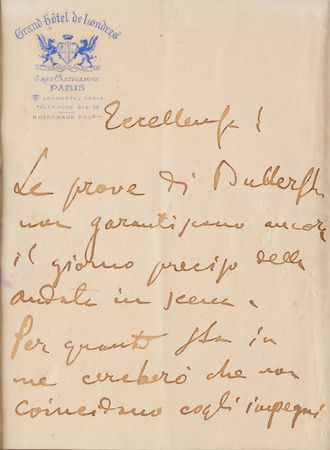 Grand Hôtel de Londres
5 RUE CASTIGLIONE
PARIS
LONDHOTEL PARIS
TÉLÉPHONE 242-68
H. HERRMANN PROP
Eccellenza!
Le prove di Butterfly
non garantiscono ancora
il giorno preciso della
andata in scena.
Per quanto sta in
me cercherò che non
coincidano cogli impegni